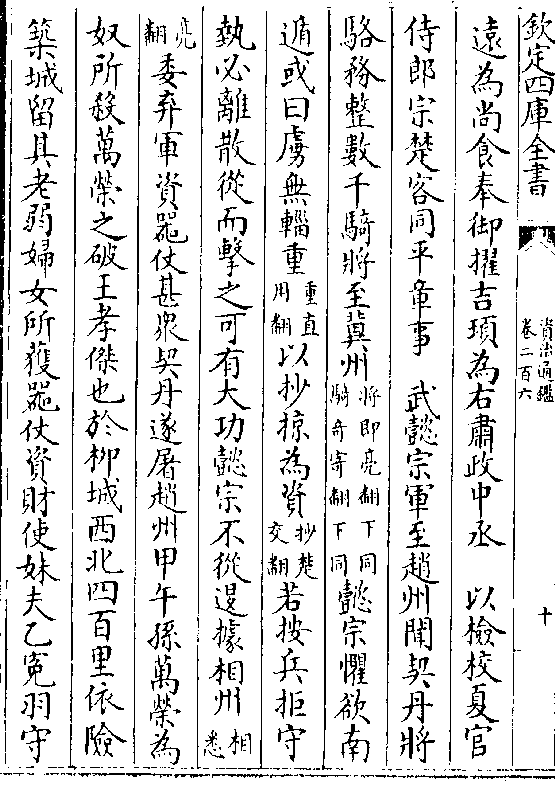 欽定四庫全書
資治通鑑
卷二百六
十
遠為尚食奉御擢吉頊為右肅政中丞　以檢校夏官
侍郎宗楚客同平章事　武懿宗軍至趙州聞契丹將
駱務整數千騎將至冀州將即亮翻下同騎奇寄翻下同懿宗懼欲南
遁或曰虜無輜重重直用翻以抄掠為資抄楚交翻若按兵拒守
埶必離散從而擊之可有大功懿宗不從退據相州相悉
亮翻委弃軍資器仗甚衆契丹遂屠趙州甲午孫萬榮為
奴所殺萬榮之破王孝傑也於柳城西北四百里依險
築城留其老弱婦女所獲器仗資財使妹夫乙寃羽守